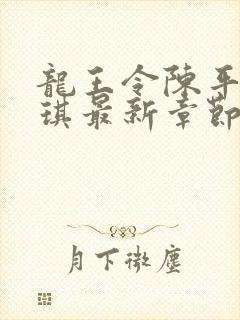 龍王令陳平
琪最新章節
月下微塵